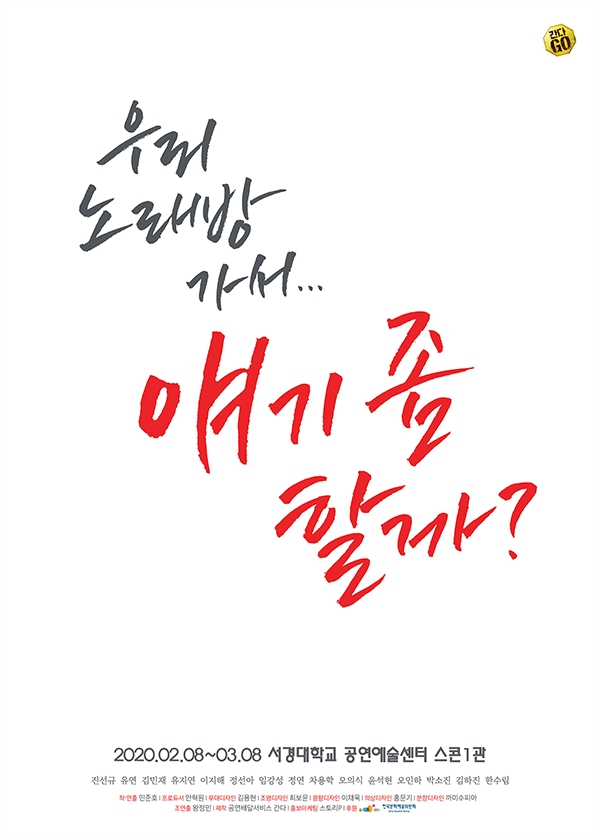 간다
GO
우리
노래방
가서...
얘기 좀
할까?
2020.02.08~03.08 서경대학교 공연예술센터 스콘1관
진선규 유연 김민재 유지연 이지해 정선아 임강성 정연 차용학 오의식 윤석현 오인하 박소진 김하진 한수림
작·연출 민준호 I 프로듀서 안혁원 I 무대디자인 김용현 I 조명디자인 최보윤 I 음향디자인 이채욱 I 의상디자인 홍문기 I 분장디자인 까미수피아
조연출 왕정민 I 제작 공연배달서비스 간다 I 홍보마케팅 스토리P I 후원 한국문화예술위원회